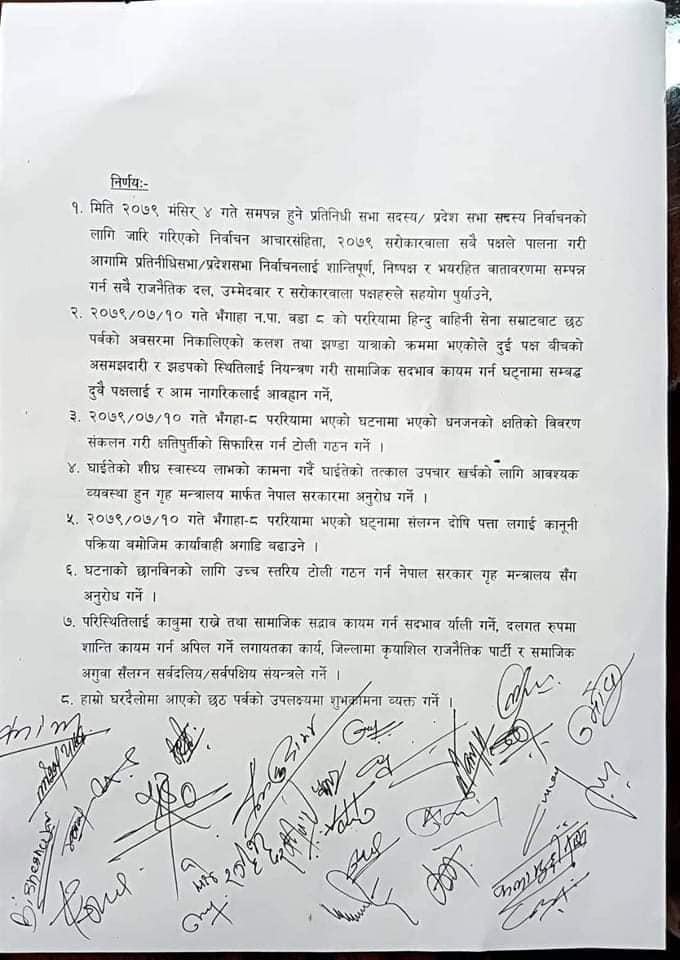 निर्णयः-
१. मिति २०७९ मंसिर ४ गते समपन्न हुने प्रतिनिधी सभा सदस्य/ प्रदेश सभा सदस्य निर्वाचनको
लागि जारि गरिएको निर्वाचन आचारसंहिता, २०७९ सरोकारवाला सबै पक्षले पालना गरी
आगामि प्रतिनीधिसभा/प्रदेशसभा निर्वाचनलाई शान्तिपूर्ण, निष्पक्ष र भयरहित वातावरणमा सम्पन्न
गर्न सबै राजनैतिक दल, उम्मेदवार र सरोकारवाला पक्षहरुले सहयोग पुर्याउने,
२. २०७९/०७/१० गते भँगाहा न.पा. वडा ८ को परिरियामा हिन्दु वाहिनी सेना सम्राटबाट छठ
पर्वको अवसरमा निकालिएको कलश तथा झण्डा यात्राको क्रममा भएकोले दुई पक्ष बीचको
असमझदारी र झडपको स्थितिलाई नियन्त्रण गरी सामाजिक सदभाव कायम गर्न घट्नामा सम्बद्ध
दुवै पक्षलाई र आम नागरिकलाई आवह्वान गर्ने,
३. २०७९/०७/१० गते भँगहा-८ पररियामा भएको घटनामा भएको धनजनको क्षतिको बिवरण
संकलन गरी क्षतिपुर्तीको सिफारिस गर्न टोली गठन गर्ने ।
४. घाईतेको शीघ्र स्वास्थ्य लाभको कामना गर्दै घाईतेको तत्काल उपचार खर्चको लागि आवश्यक
व्यवस्था हुन गृह मन्त्रालय मार्फत नेपाल सरकारमा अनुरोध गर्ने ।
५. २०७९/०७/१० गते भँगाहा-८ पररियामा भएको घट्नामा संलग्न दोषि पत्ता लगाई कानूनी
पक्रिया बमोजिम कार्यावाही अगाडि बढाउने ।
६. घटनाको छानविनको लागि उच्च स्तरिय टोली गठन गर्न नेपाल सरकार गृह मन्त्रालय सँग
अनुरोध गर्ने ।
७. परिस्थितिलाई काबुमा राख्ने तथा सामाजिक सद्भाव कायम गर्न सदभाव र्याली गर्ने, दलगत रुपमा
शान्ति कायम गर्न अपिल गर्ने लगायतका कार्य, जिल्लामा कृयाशिल राजनैतिक पार्टी र समाजिक
अगुवा सँलग्न सर्वदलिय/सर्वपक्षिय संयन्त्रले गर्ने ।
८. हाम्रो घरदैलोमा आएको छठ पर्वको उपलक्ष्यमा शुभकामना व्यक्त गर्ने ।